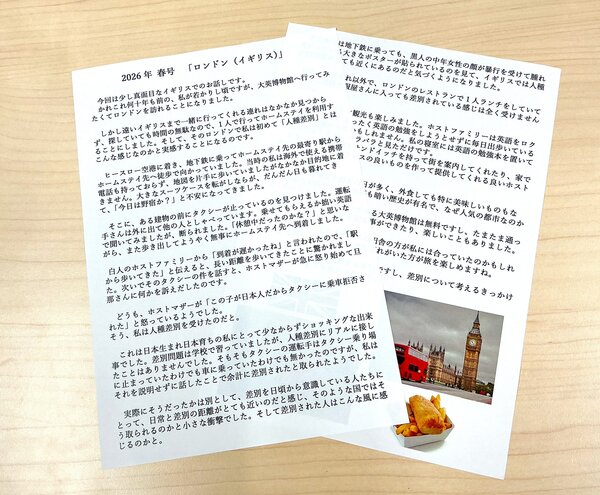 2026年 春号 「ロンドン（イギリス）」
今回は少し真面目なイギリスでのお話しです。
かれこれ何十年も前の、私が若かりし頃ですが、大英博物館へ行ってみ
たくてロンドンを訪れることになりました。
しかし遠いイギリスまで一緒に行ってくれる連れはなかなか見つから
ず、探していても時間の無駄なので、1人で行ってホームステイを利用す
ることにしました。そして、そのロンドンで私は初めて「人種差別」とは
こんな感じなのかと実感することになるのです。
ヒースロー空港に着き、地下鉄に乗ってホームステイ先の最寄り駅から
ホームステイ先へ徒歩で向かっていました。当時の私は海外で使える携帯
電話も持っておらず、地図を片手に歩いていましたがなかなか目的地に着
きません。大きなスーツケースを転がしながら、だんだん日も暮れてき
て、「今日は野宿か？」と不安になってきました。
そこに、ある建物の前にタクシーが止っているのを見つけました。運転
手さんは外に出て他の人としゃべっています。乗せてもらえるか拙い英語
で聞いてみましたが、断られました。「休憩中だったのかな？」と思いな
がら、また歩き出してようやく無事にホームステイ先へ到着しました。
白人のホストファミリーから「到着が遅かったね」と言われたので、「駅
から歩いてきた」と伝えると、長い距離を歩いてきたことに驚かれまし
た。次いでそのタクシーの件を話すと、ホストマザーが急に怒り始めて旦
那さんに何かを訴えだしたのです。
どうも、ホストマザーが「この子が日本人だからタクシーに乗車拒否さ
れた」と怒っているようでした。
そう、私は人種差別を受けたのだと。
これは日本生まれ日本育ちの私にとって少なからずショッキングな出来
事でした。差別問題は学校で習っていましたが、人種差別にリアルに接し
たことはありませんでした。そもそもタクシーの運転手はタクシー乗り場
に止まっていたわけでも車に乗っていたわけでも無かったのですが、私は
それを説明せずに話したことで余計に差別されたと取られたようでした。
実際にそうだったかは別として、差別を日頃から意識している人たちに
とって、日常と差別の距離がとても近いのだと感じ、そのような国ではそ
う取られるのかと小さな衝撃でした。そして差別された人はこんな風に感
じるのかと。
は地下鉄に乗っても、黒人の中年女性の顔が暴行を受けて腫れ
大きなポスターが貼られているのを見て、イギリスでは人種
ても近くにあるのだと気づくようになりました。
れ以外で、ロンドンのレストランで1人ランチをしていて
服屋さんに入っても差別されている感じは全く受けません
観光も楽しみました。ホストファミリーは英語をロク
ったく英語の勉強をしようとせずに毎日出歩いている
もしれません。私の寝室には英語の勉強本を置いて
パラパラと見ただけです。
ンドイッチを持って街を案内してくれたり、家で
スの良いものを作って提供してくれる良いホスト
日が多く、外食しても特に美味しいものもな
も暗い歴史が有名で、なぜ人気の都市なのか
る大英博物館は無料ですし、たまたま通っ
事ができたり、楽しいこともありました。
田舎の方が私には合っていたのかもしれ
れがいた方が旅を楽しめますね。
ですし、差別について考えるきっかけ